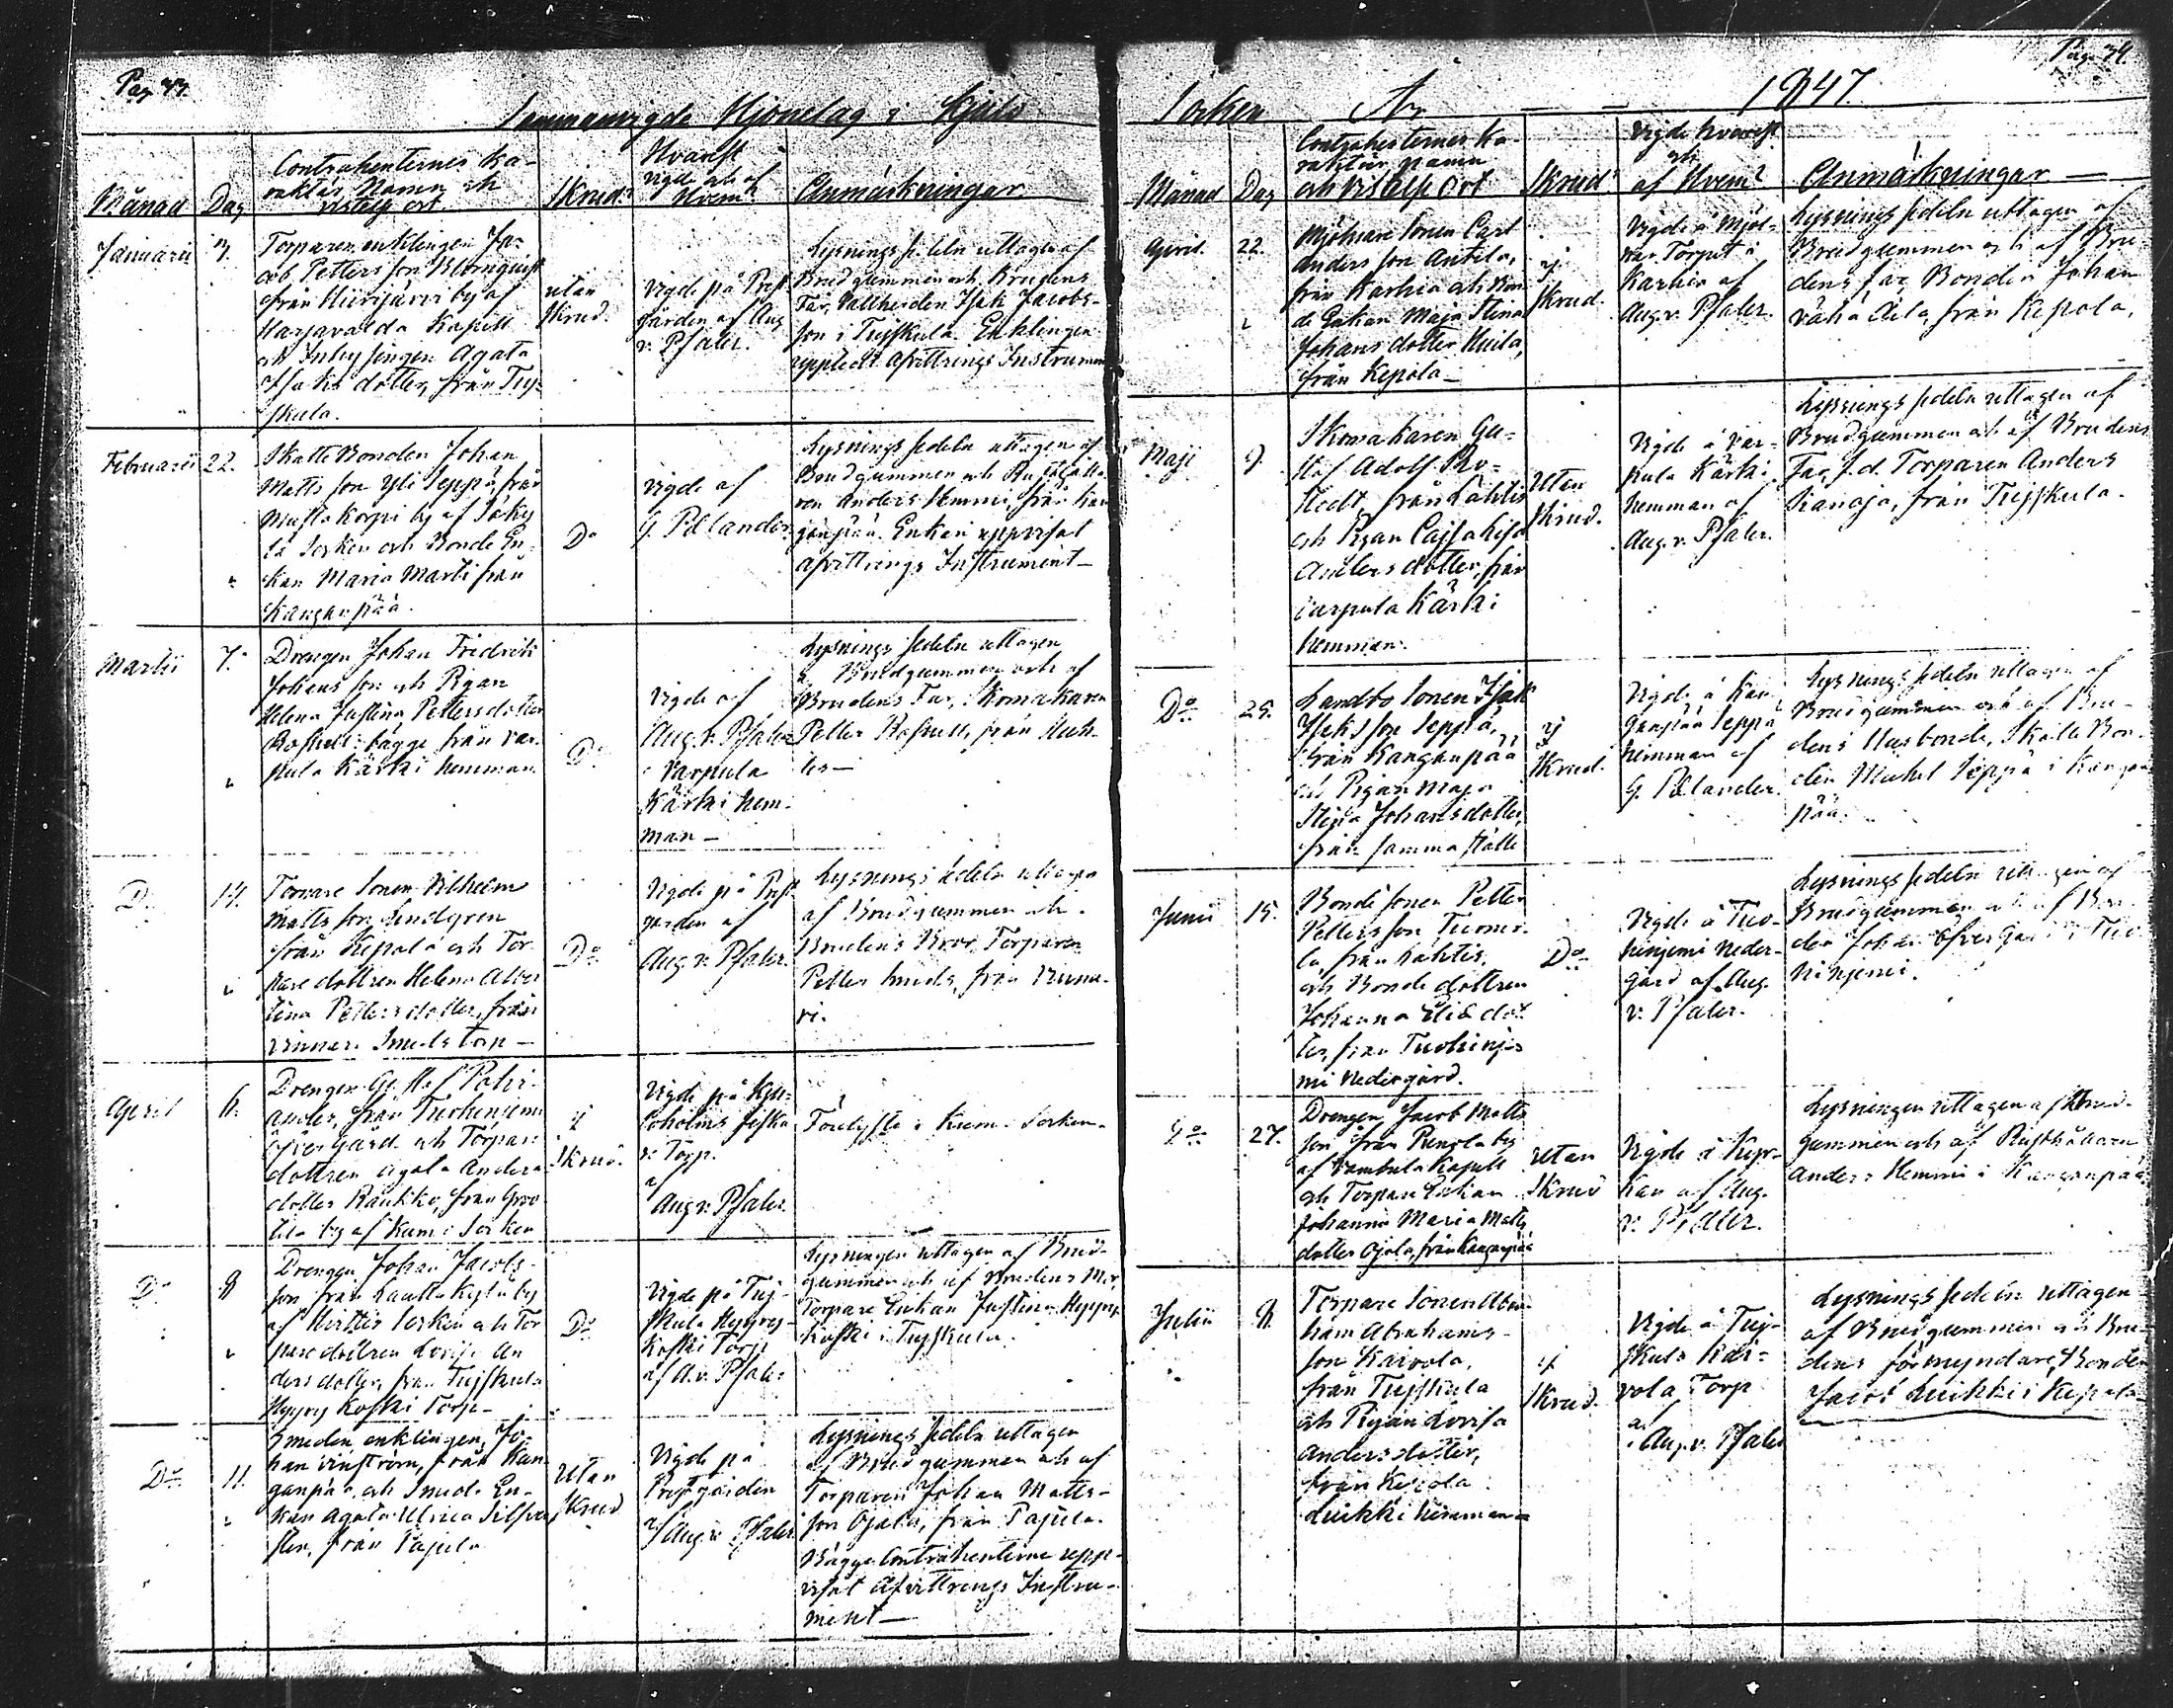 Pag. 33.
Sammanvigde Hjonelag i Kjulo
Månad
Dag
Contrahenternes ka-
raktär, Namn och
vistelse ort.
Skrud.
Hvarest
vigde och af
Hvem?
Anmärkningar
Januarii
3.
Torparen enklingen Ja-
cob Petters son Blomquist
från Hiirijärvi by af
Harjavalda Kapell
och Inhysingen Agata
Isaks dotter, från Tuj-
skula.
utan
skrud.
Vigde på Prest
gården af Aug.
v. Pfaler.
Lysnings sedeln uttagen af
Brudgummen och Brudens
Far, Vallherden Isak Jacobs-
son i Tujskula. Enklingen
uppledt afvittrings Instrument
Februarii
22.
Skatte Bonden Johan
Matts son Yli Seppä, från
Musta Korpi by af Säky-
lä Socken och Bonde En-
kan Maria Marti från
Kanganpää.
Do
Vigde af
G. Polander
Lysnings sedeln uttagen af
Brudgummen och Rusthålla-
ren Anders Hemmi, från Kan-
ganpää. Enkan uppvisat
afvittrings Instrument—
Martii
7.
Drengen Johan Fridrik
Johans son och Pigan
Helena Justina Pettersdotter
Rosnell: bägge från Var-
pula Kärki hemman.
Do
Vigde af
Aug. v. Pfaler
i Varpula
Kärki hem-
man—
Lysnings sedeln uttagen
af Brudgummen och af
Brudens Far, Skomakaren
Petter Rosnell, från
Do
14.
Torpare Sonen Vilhelm
Matts son Lindgren
från Kepola och Tor-
pare dottren Helena Alber-
tina Petters dotter, från
Vinnari Smeds torp—
Do
Vigde på Prest
gården af
Aug. v. Pfaler.
Lysnings sedeln uttagen
af Brudgummen och
Brudens Bror, Torparen
Petter Smeds, från Vinna-
ri.
April
6.
Drengen Gustaf
från Tuohinjemi
Öfvergård och Torpare
dottren Agata Anders
dotter Raukko, från
by af Kumo Socken
ij
Skrud.
Vigde på Kju-
loholms
Torp.
af
Aug. v. Pfaler.
Förelyste i Kumo Socken.
Do
8
Drengen Johan Jacobs-
son från Lautta Kylä by
af Hvittis Socken och Tor-
pare dottren Lovisa An-
ders dotter, från Tujskula
Hyyry Koski Torp—
Do
Vigde på Tuj-
skula Hyyry-
Koski Torp
af A. v. Pfaler
Lysningen uttagen af Brud-
gummen och af Brudens Mor,
Torpare Enkan Justina Hyyry-
koski i Tujskula.
Do
11.
Smeden, enklingen, Jo-
han Vinström, från Kan-
ganpää och Smeds En-
kan Agata Ulrica Silfver-
sten, från Pajula
Utan
skrud
Vigde på
Prestgården
af Aug. v. Pfaler
Lysnings sedeln uttagen
af Brudgummen och af
Torparen Johan Matts-
son Ojala, från Pajula.
Bägge Contrahenterne upp-
visat afvittrings Instru-
ment—
Pag. 34
Socken År 1847
Månad
Dag
Contrahenternes ka-
raktär, namn
och vistelse Ort
Skrud
Vigde hvarest
och
af Hvem?
Anmärkningar—
April.
22.
Mjölnare Sonen Carl
Anders son Antila,
från Karhia och Bon-
de Enkan Maja Stina
Johans dotter Uula,
från Kepola—
ij
skrud.
Vigde å Mjöl-
nar Torpet i
Karhia af
Aug. v. Pfaler.
Lysnings sedeln uttagen af
Brudgummen och af Bru-
dens far, Bonden Johan
Vähä från Kepola.
Maji
9.
Skomakaren Gu-
staf Adolf
från Lahtis
och Pigan Cajsa Lisa
Anders dotter, från
Varpula Kärki
hemman.
Utan
skrud.
Vigde å Var-
pula Kärki
hemman af
Aug. v. Pfaler.
Lysnings sedeln uttagen af
Brudgummen och af Brudens
Far, f.d. Torparen Anders
Kanaja, från Tujskula.
Do
25.
Landbo Sonen Isak
Isaks son Seppä,
från Kanganpää
och Pigan Maja
Stina Johansdotter,
från samma ställe
ij
skrud.
Vigde å Kan-
ganpää Seppä
hemman af
G. Polander.
Lysnings sedeln uttagen af
Brudgummen och af Bru-
dens Husbonde, Skatte Bon-
den Mickel Seppä i Kangan
pää.
Junii
15.
Bonde sonen Petter
Petters son Tuomo-
la, från Lahtis,
och Bonde dottren
Johanna Elis dot-
ter, från Tuohinje-
mi Nedergård.
Do
Vigde å Tuo-
hinjemi Neder-
gård af Aug.
v. Pfaler.
Lysnings sedeln uttagen af
Brudgummen och af Bon-
den Johan Öfvergård i Tuo-
hinjemi.
Do
27.
Drengen Jacob Matts
son från Punola by
af Vambula Kapell
och Torpare Enkan
Johanna Maria Matts
dotter Ojala, från Kanganpää
utan
skrud
Vigde i Kyr-
kan af Aug.
v. Pfaler.
Lysningen uttagen af Brud-
gummen och af Rusthållaren
Anders Hemmi i Kanganpää.
Julii
8.
Torpare Sonen Abra-
ham Abrahams-
son Kaivola,
från Tujskula
och Pigan Lovisa
Anders dotter,
från Kepola
Luikki hemman—
ij
Skrud.
Vigde å Tuj-
skula Kai-
vola Torp
af
Aug. v. Pfaler
Lysnings sedeln uttagen
af Brudgummen och Bru-
dens förmyndare, Bonden
Jacob Luikki i Kepola